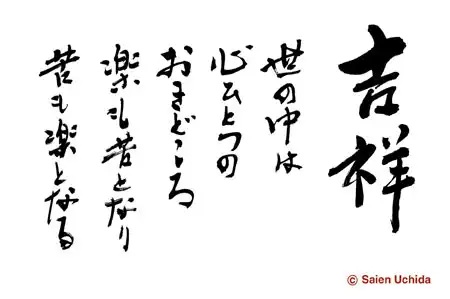 吉祥
世の中は
心ひとつの
おきどころ
楽も苦となり
苦も楽となる
© Saien Uchida